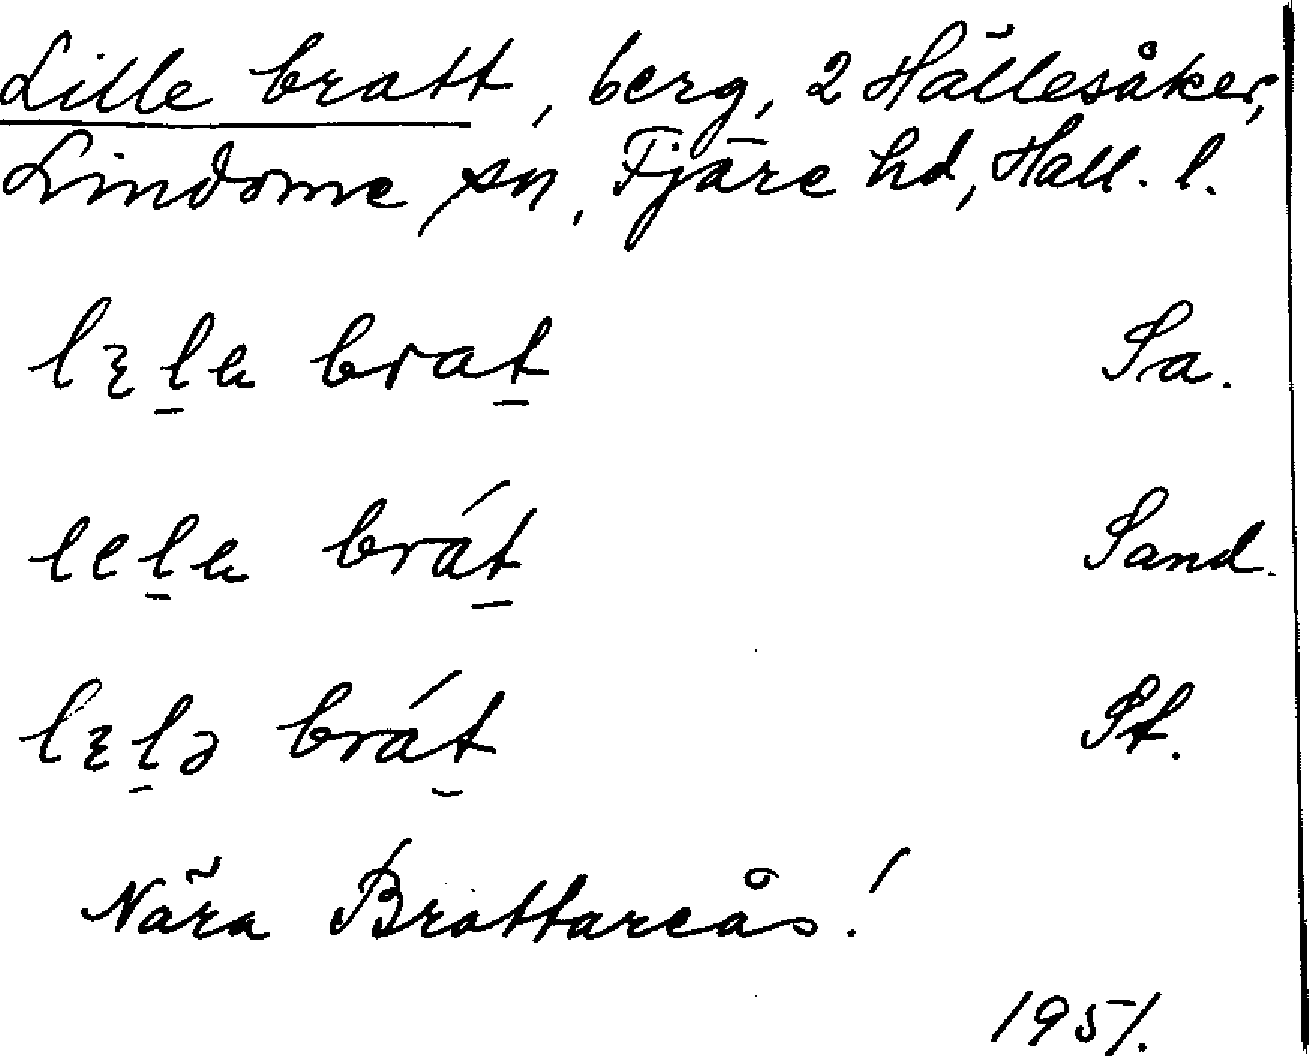 Lille bratt, berg, 2 Hällesåker,
Lindome sn, Fjäre hd, Hall. l.
lɛl̲a brat̲ Sa.
lel̲a brát̲ Sand.
lɛl̲ə brát̲ St.
Nära Brattareås!
1951.